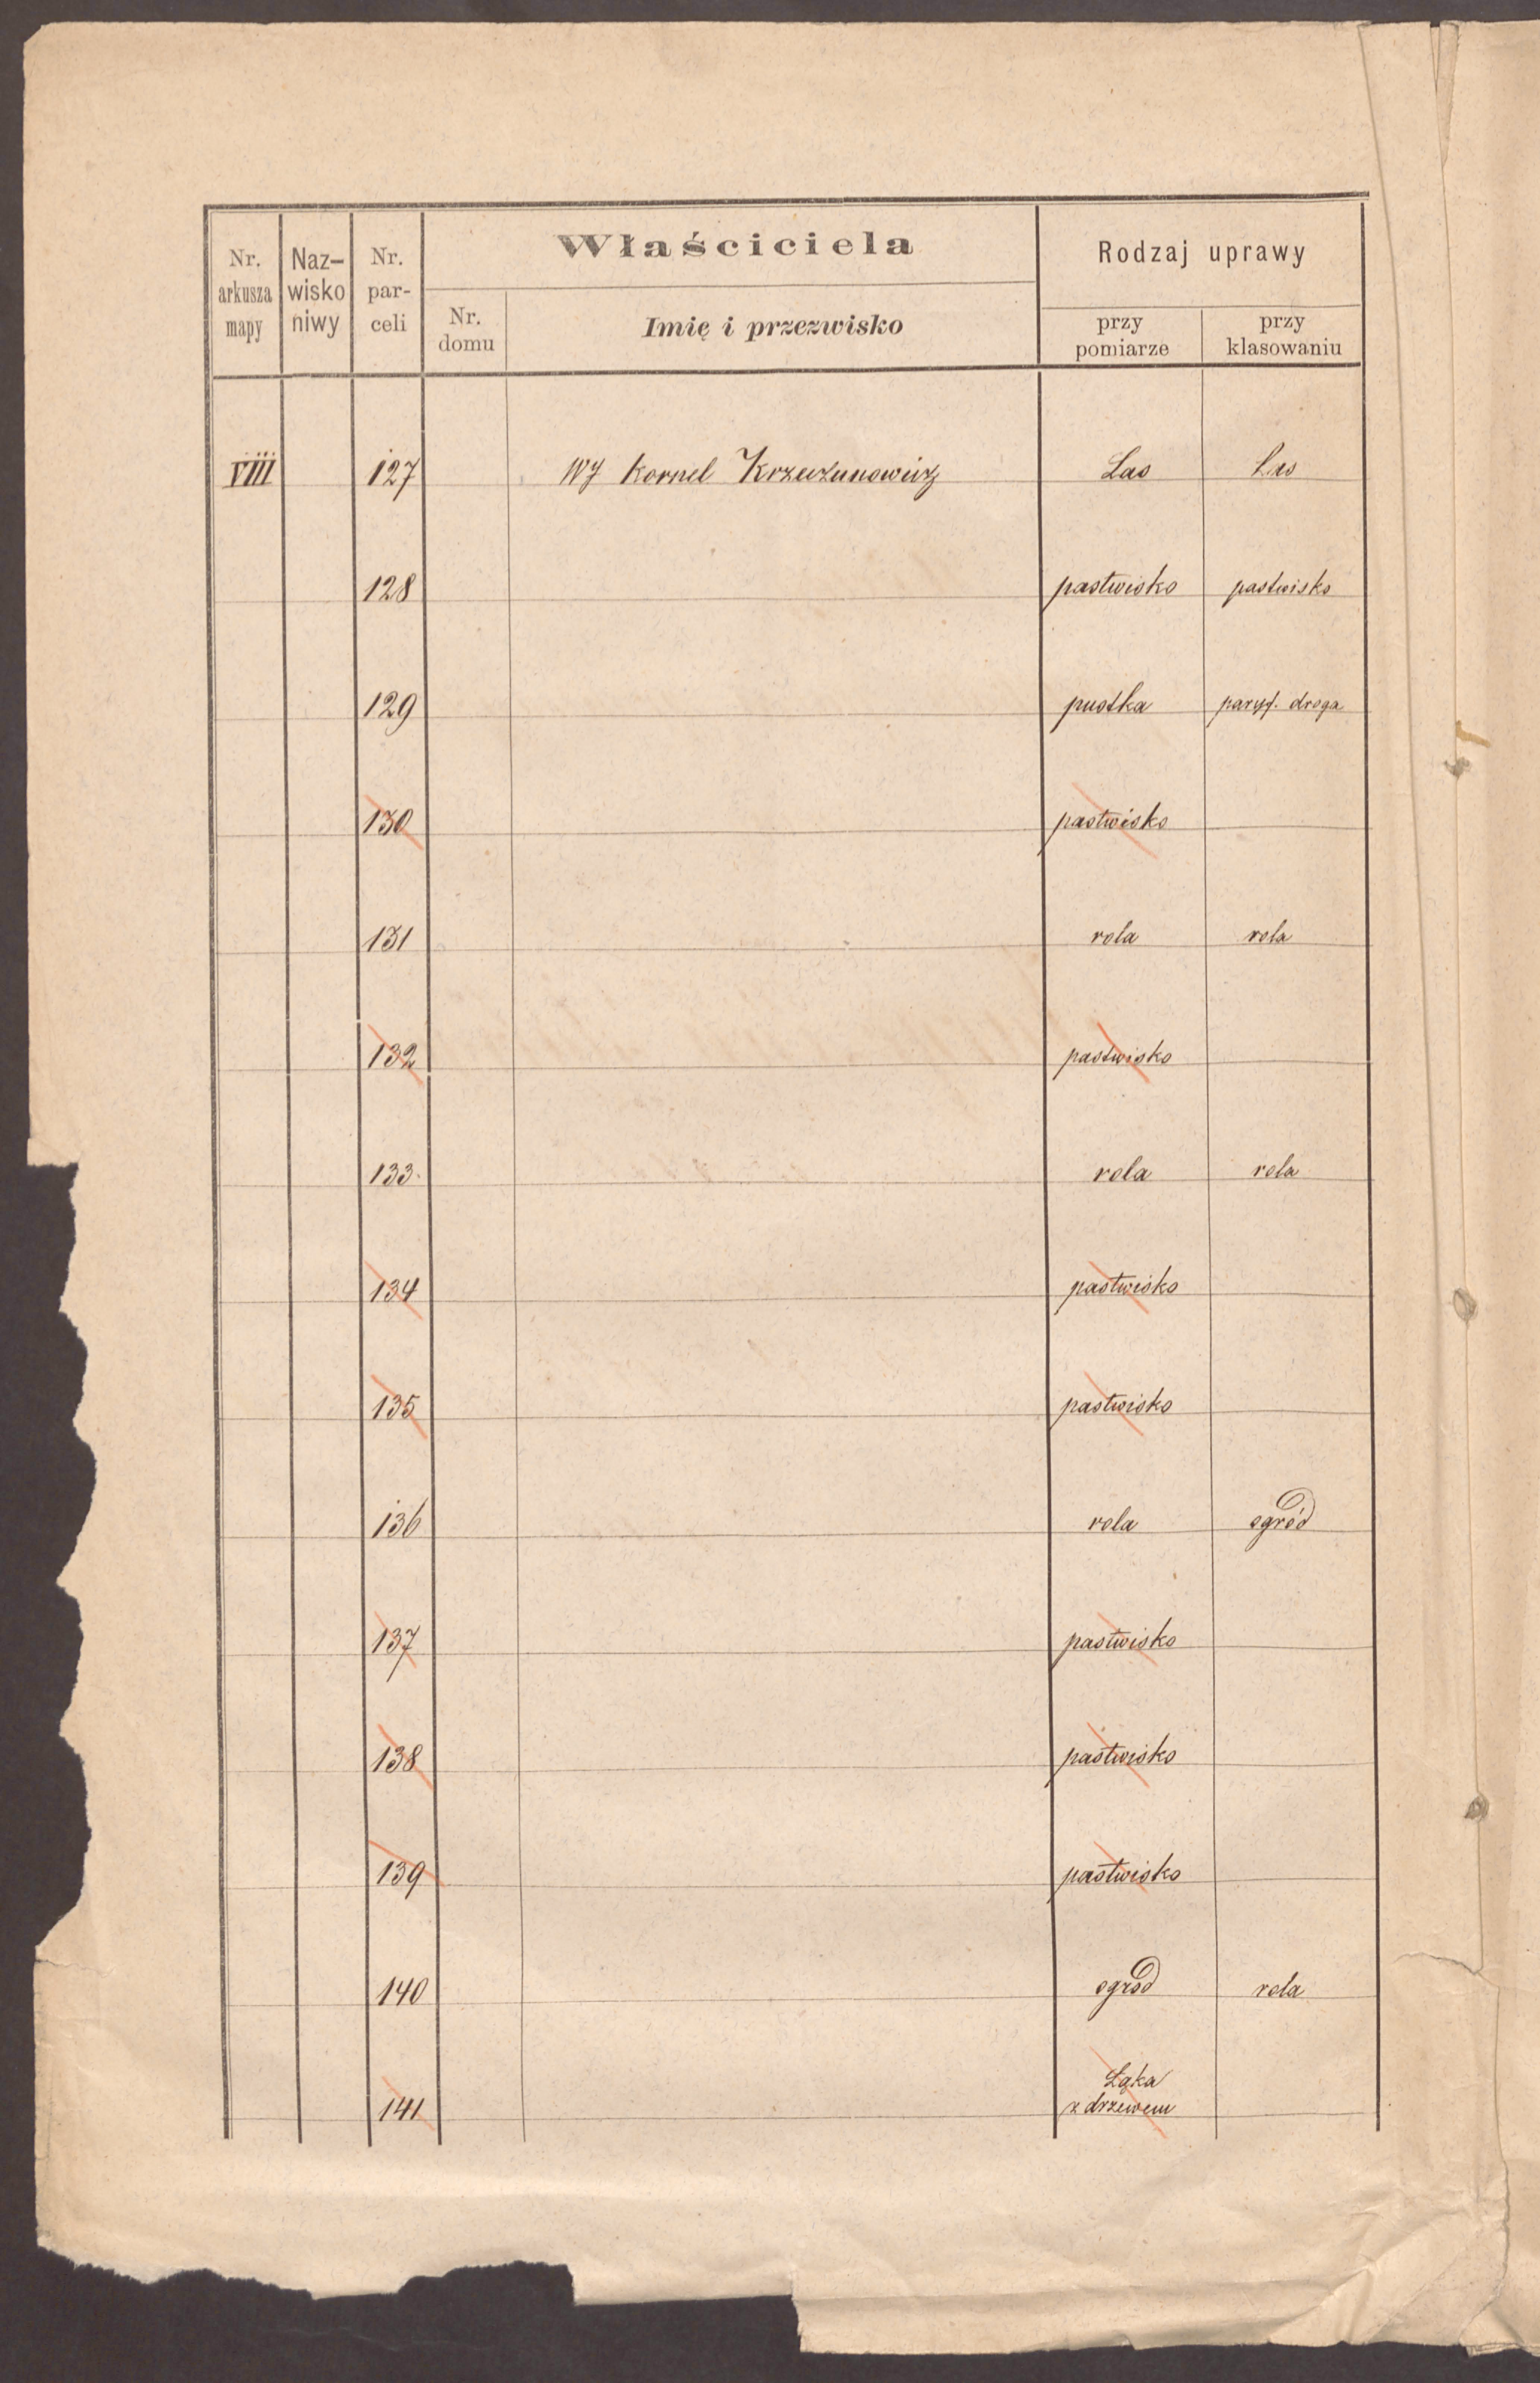 Nr. arkusza mapy | Nazwisko niwy | Nr. parceli | Właściciela | Rodzaj uprawy
Nr. domu | Imię i przezwisko | przy pomiarze | przy klasowaniu
VIII 127 WJ Kornel Krzeczunowicz Las Las
128 pastwisko pastwisko
129 pustka paryf. droga
130 pastwisko
131 rola rola
132 pastwisko
133 rola rola
134 pastwisko
135 pastwisko
136 rola ogród
137 pastwisko
138 pastwisko
139 pastwisko
140 ogród rola
141 Łąka
z drzewem